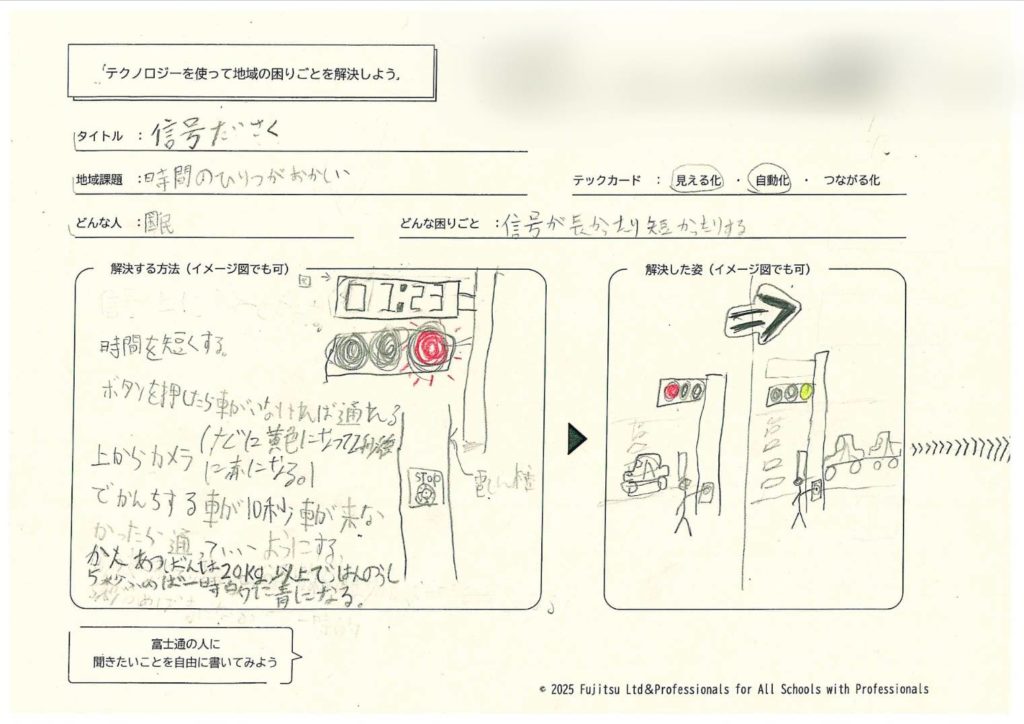 「テクノロジーを使って地域の困りごとを解決しよう」
タイトル ： 信号ださく
地域課題 ：時間のひりつがおかしい
テックカード ： 見える化 ・ 自動化 ・ つながる化
どんな人 ：国民
どんな困りごと ：信号が長かったり短かったりする
解決する方法（イメージ図でも可）
01:23
時間を短くする。
ボタンを押したら車がいなければ通れる
黄色になって2秒後
に赤になる。)
上からカメラ
でかんちする車が10秒車が来な
かったら通っていいようにする。
20kg以上ではんのうし
5秒ふめば一時的に青になる。
STOP
電しん柱
解決した姿（イメージ図でも可）
富士通の人に
聞きたいことを自由に書いてみよう
© 2025 Fujitsu Ltd&Professionals for All Schools with Professionals